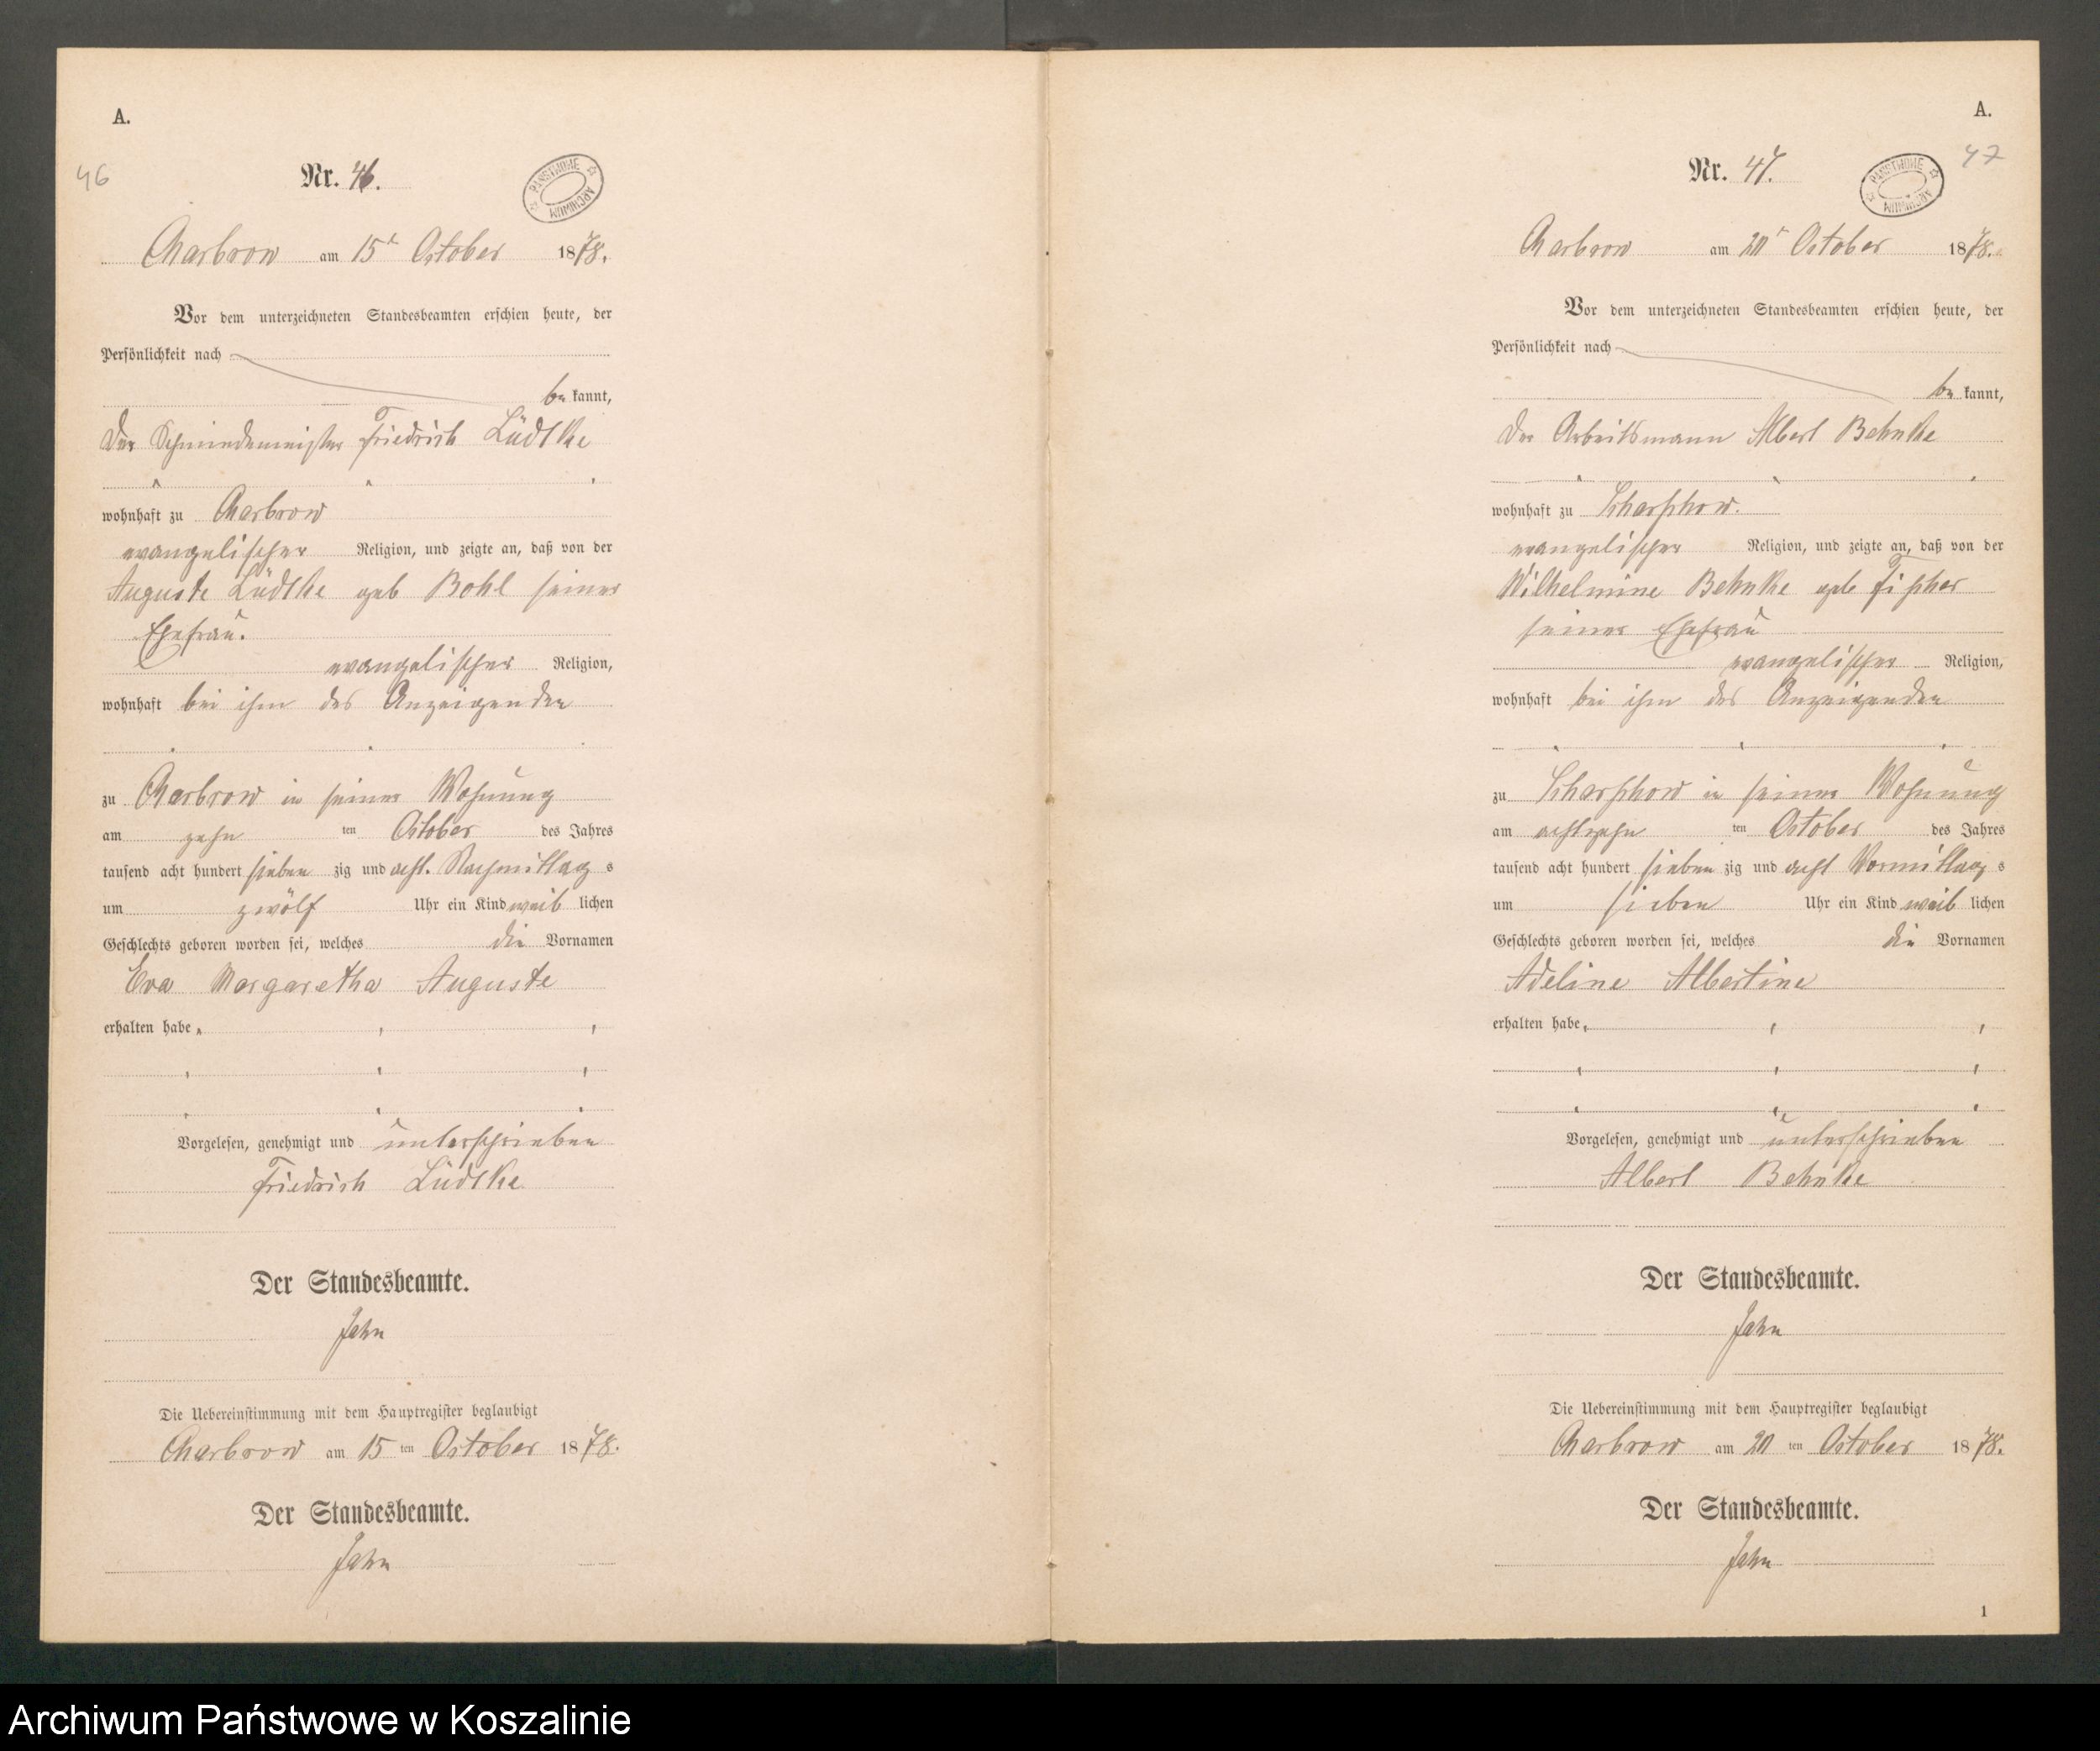 A.
46
Nr. 46.
PAŃSTWOWE ARCHIWUM
Charbrow am 15t October 1878.
Vor dem unterzeichneten Standesbeamten erschien heute, der
Persönlichkeit nach
be kannt,
der Schmiedemeister Friedrich Lüdtke
wohnhaft zu Charbrow
evangelischer Religion, und zeigte an, daß von der
Auguste Lüdtke geb Bohl seiner
Ehefrau.
evangelischer Religion,
wohnhaft bei ihm des Anzeigenden
zu Charbrow in seiner Wohnung
am zehn ten October des Jahres
tausend acht hundert sieben zig und acht. Nachmittag s
um zwölf Uhr ein Kind weib lichen
Geschlechts geboren worden sei, welches die Vornamen
Eva Margaretha Auguste
erhalten habe
Vorgelesen, genehmigt und unterschrieben
Friedrich Lüdtke
Der Standesbeamte.
Jahn
Die Uebereinstimmung mit dem Hauptregister beglaubigt
Charbrow am 15 ten October 1878.
Der Standesbeamte.
Jahn
A.
47
Nr. 47.
PAŃSTWOWE ARCHIWUM
Charbrow am 20t October 1878.
Vor dem unterzeichneten Standesbeamten erschien heute, der
Persönlichkeit nach
be kannt,
der Arbeitsmann Albert Behnke
wohnhaft zu Scharschow.
evangelischer Religion, und zeigte an, daß von der
Wilhelmine Behnke geb Fischer
seiner Ehefrau
evangelischer Religion,
wohnhaft bei ihm des Anzeigenden
zu Scharschow in seiner Wohnung
am achtzehn ten October des Jahres
tausend acht hundert sieben zig und acht Vormittag s
um sieben Uhr ein Kind weib lichen
Geschlechts geboren worden sei, welches die Vornamen
Adeline Albertine
erhalten habe
Vorgelesen, genehmigt und unterschrieben
Albert Behnke
Der Standesbeamte.
Jahn
Die Uebereinstimmung mit dem Hauptregister beglaubigt
Charbrow am 20 ten October 1878.
Der Standesbeamte.
Jahn
1
Archiwum Państwowe w Koszalinie